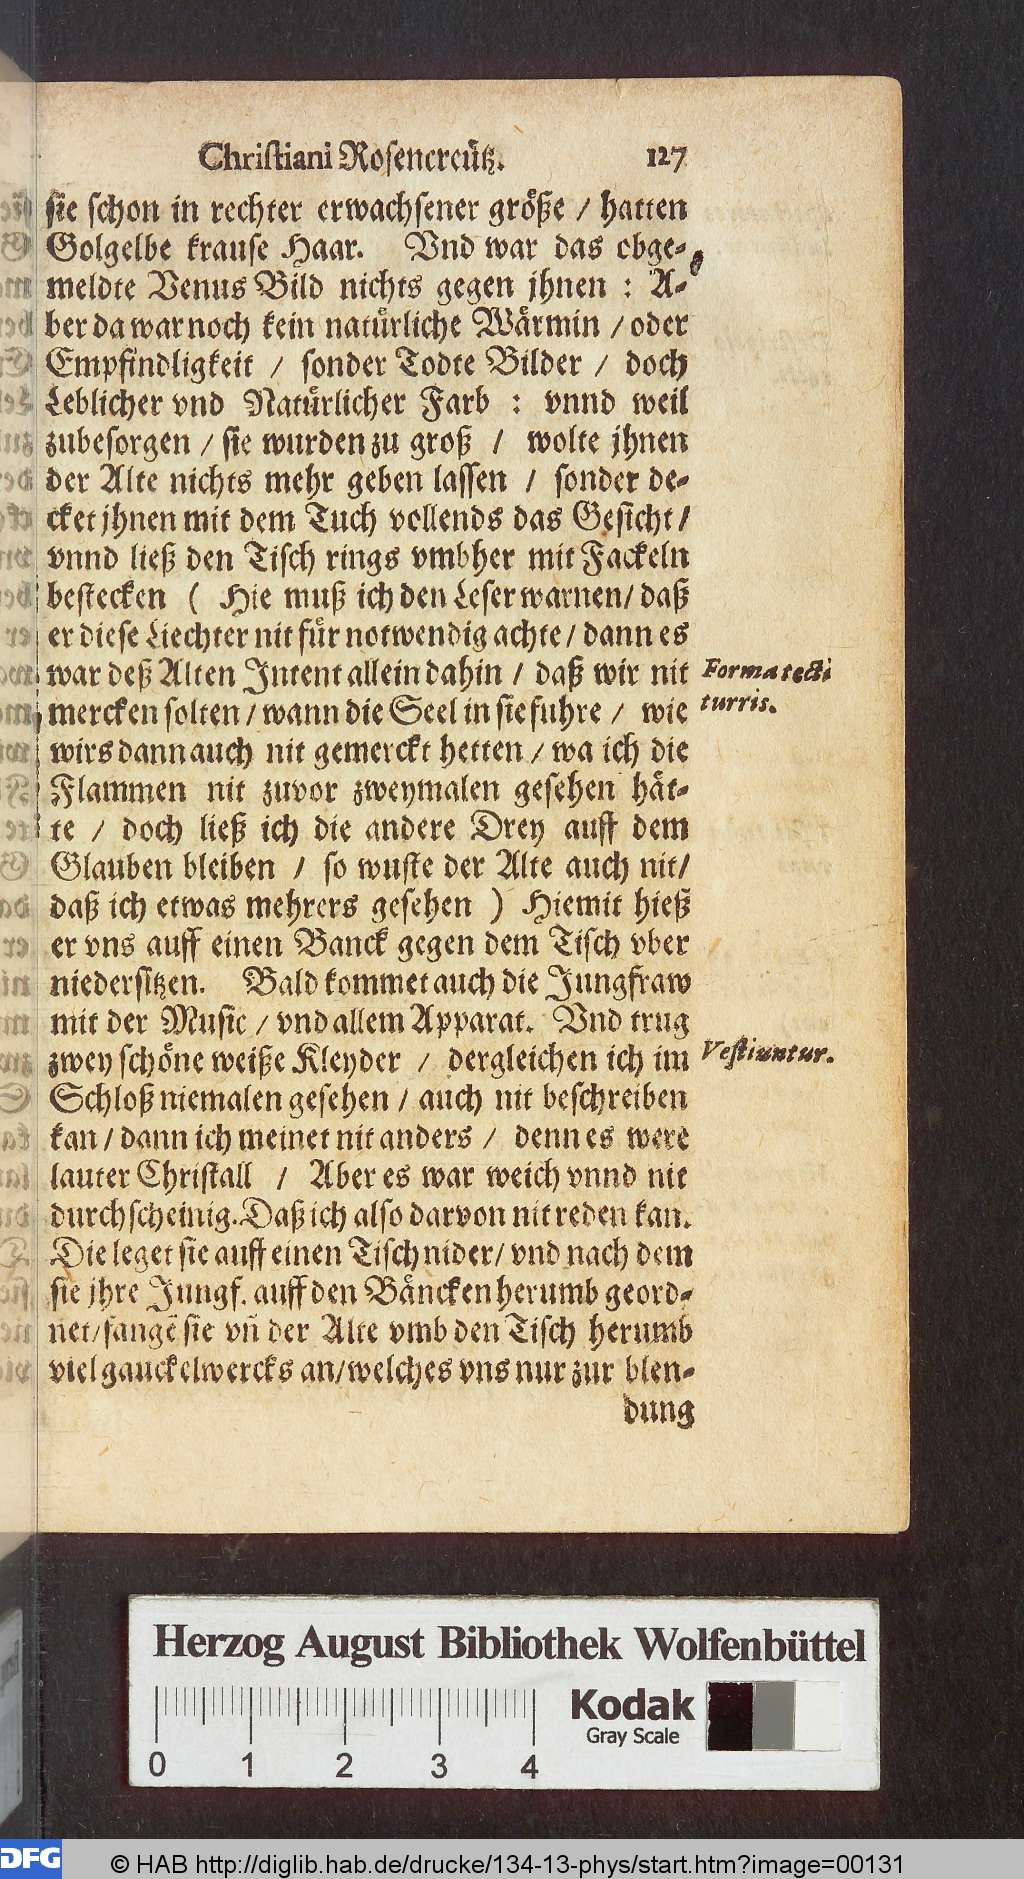 Christiani Rosencreütz. 127
sie schon in rechter erwachsener größe / hatten
Golgelbe krause Haar. Vnd war das obge-
meldte Venus Bild nichts gegen jhnen : A-
ber da war noch kein natürliche Wärmin / oder
Empfindligkeit / sonder Todte Bilder / doch
Leblicher vnd Natürlicher Farb : vnnd weil
zubesorgen / sie wurden zu groß / wolte jhnen
der Alte nichts mehr geben lassen / sonder de-
cket jhnen mit dem Tuch vollends das Gesicht /
vnnd ließ den Tisch rings vmbher mit Fackeln
bestecken ( Hie muß ich den Leser warnen / daß
er diese Liechter nit für notwendig achte / dann es
war deß Alten Intent allein dahin / daß wir nit
Forma tecti
mercken solten / wann die Seel in sie fuhre / wie
turris.
wirs dann auch nit gemerckt hetten / wa ich die
Flammen nit zuvor zweymalen gesehen hät-
te / doch ließ ich die andere Drey auff dem
Glauben bleiben / so wuste der Alte auch nit /
daß ich etwas mehrers gesehen ) Hiemit hieß
er vns auff einen Banck gegen dem Tisch vber
niedersitzen. Bald kommet auch die Jungfraw
mit der Music / vnd allem Apparat. Vnd trug
zwey schöne weiße Kleyder / dergleichen ich im
Vestiuntur.
Schloß niemalen gesehen / auch nit beschreiben
kan / dann ich meinet nit anders / denn es were
lauter Christall / Aber es war weich vnnd nit
durchscheinig. Daß ich also darvon nit reden kan.
Die leget sie auff einen Tisch nider / vnd nach dem
sie jhre Jungf. auff den Bäncken herumb geord-
net / fangē sie vñ der Alte vmb den Tisch herumb
viel gauckelwercks an / welches vns nur zur blen-
dung
Herzog August Bibliothek Wolfenbüttel
Kodak
Gray Scale
0 1 2 3 4
DFG © HAB http://diglib.hab.de/drucke/134-13-phys/start.htm?image=00131